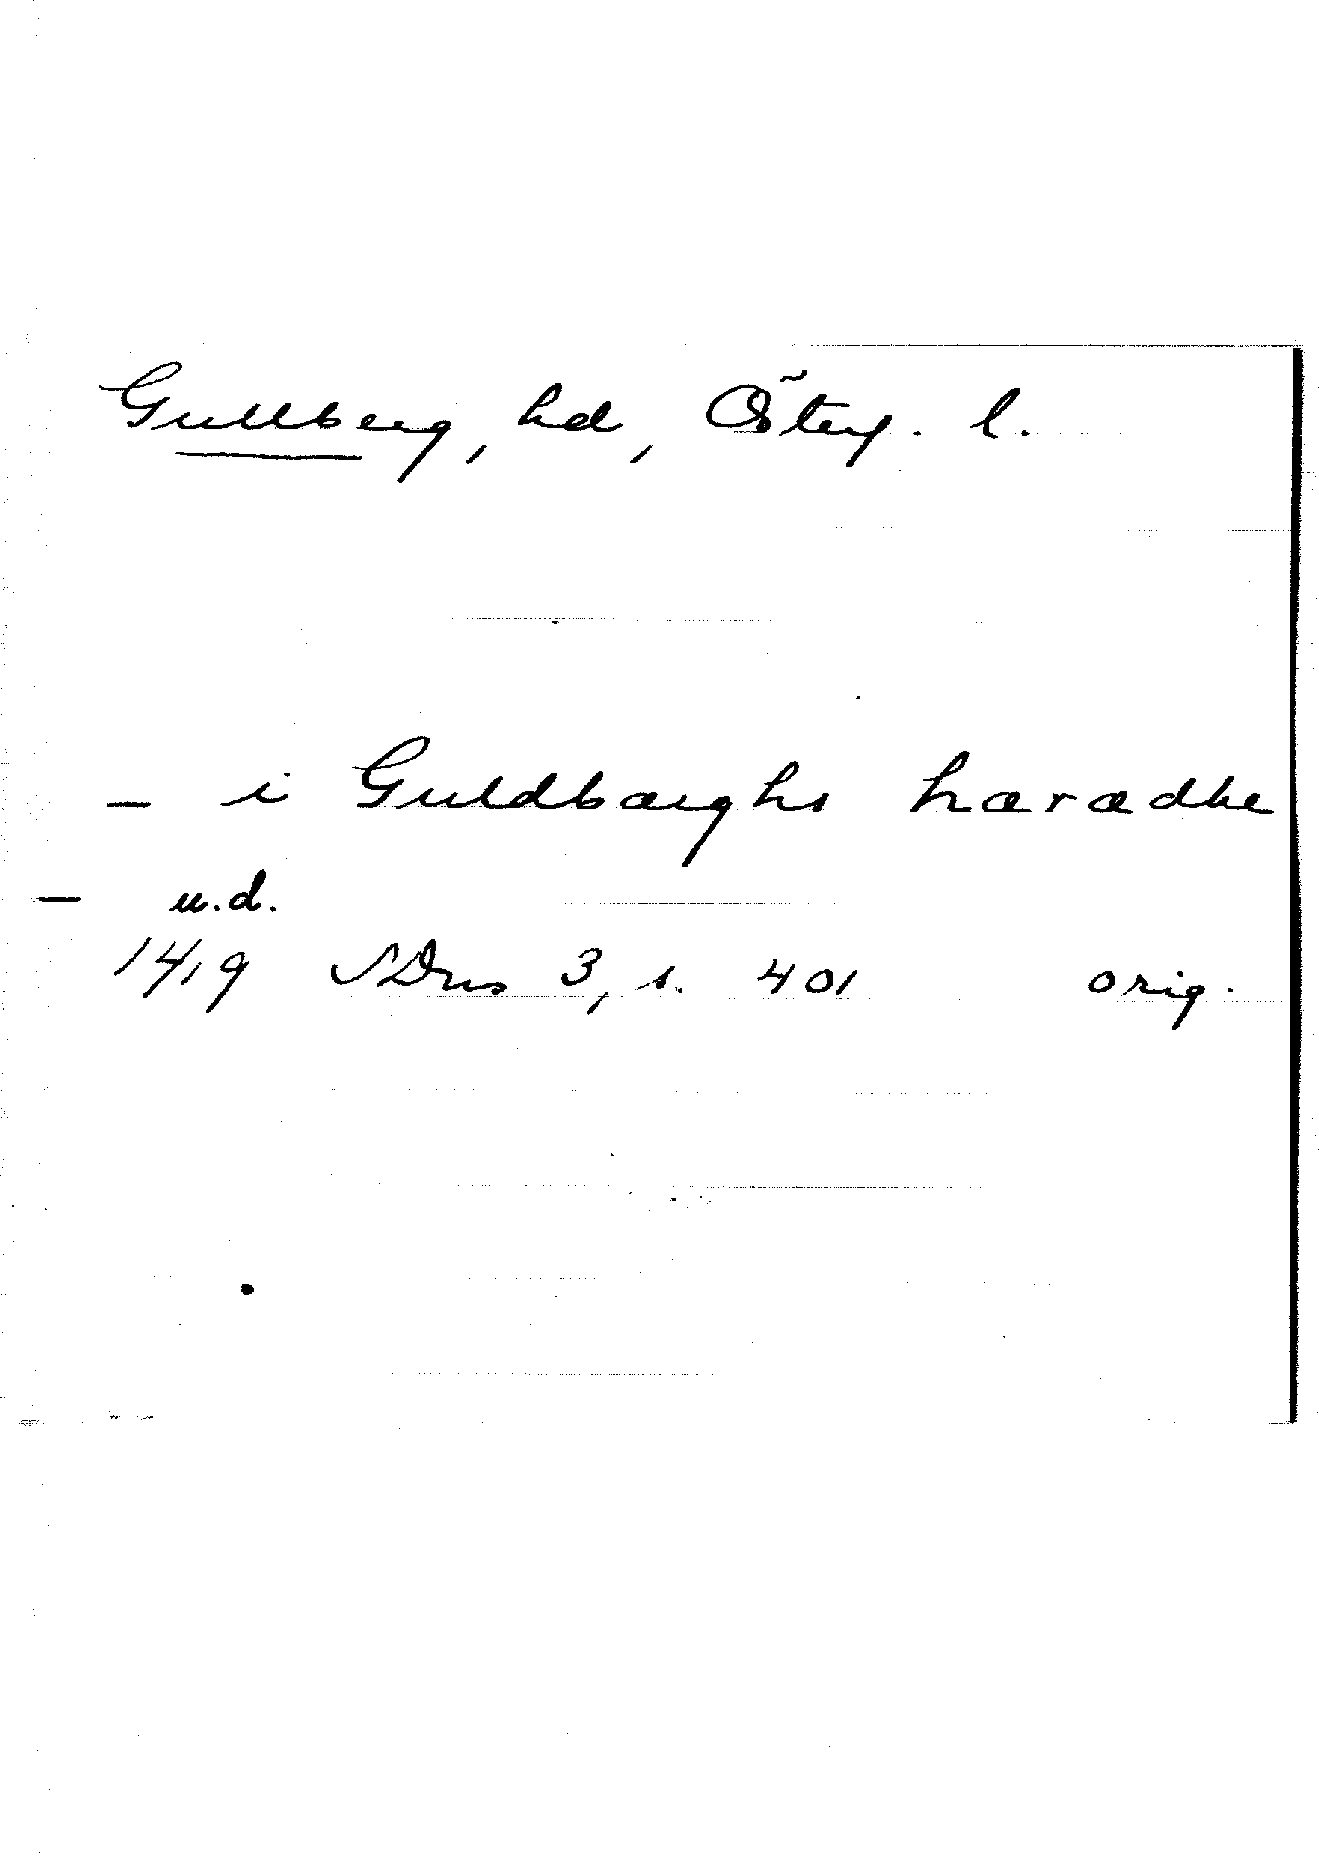 Gullberg, hd, Österg. l.
– i Guldbærghs hærædhe
– u.d.
1419 SDns 3, s. 401 orig.